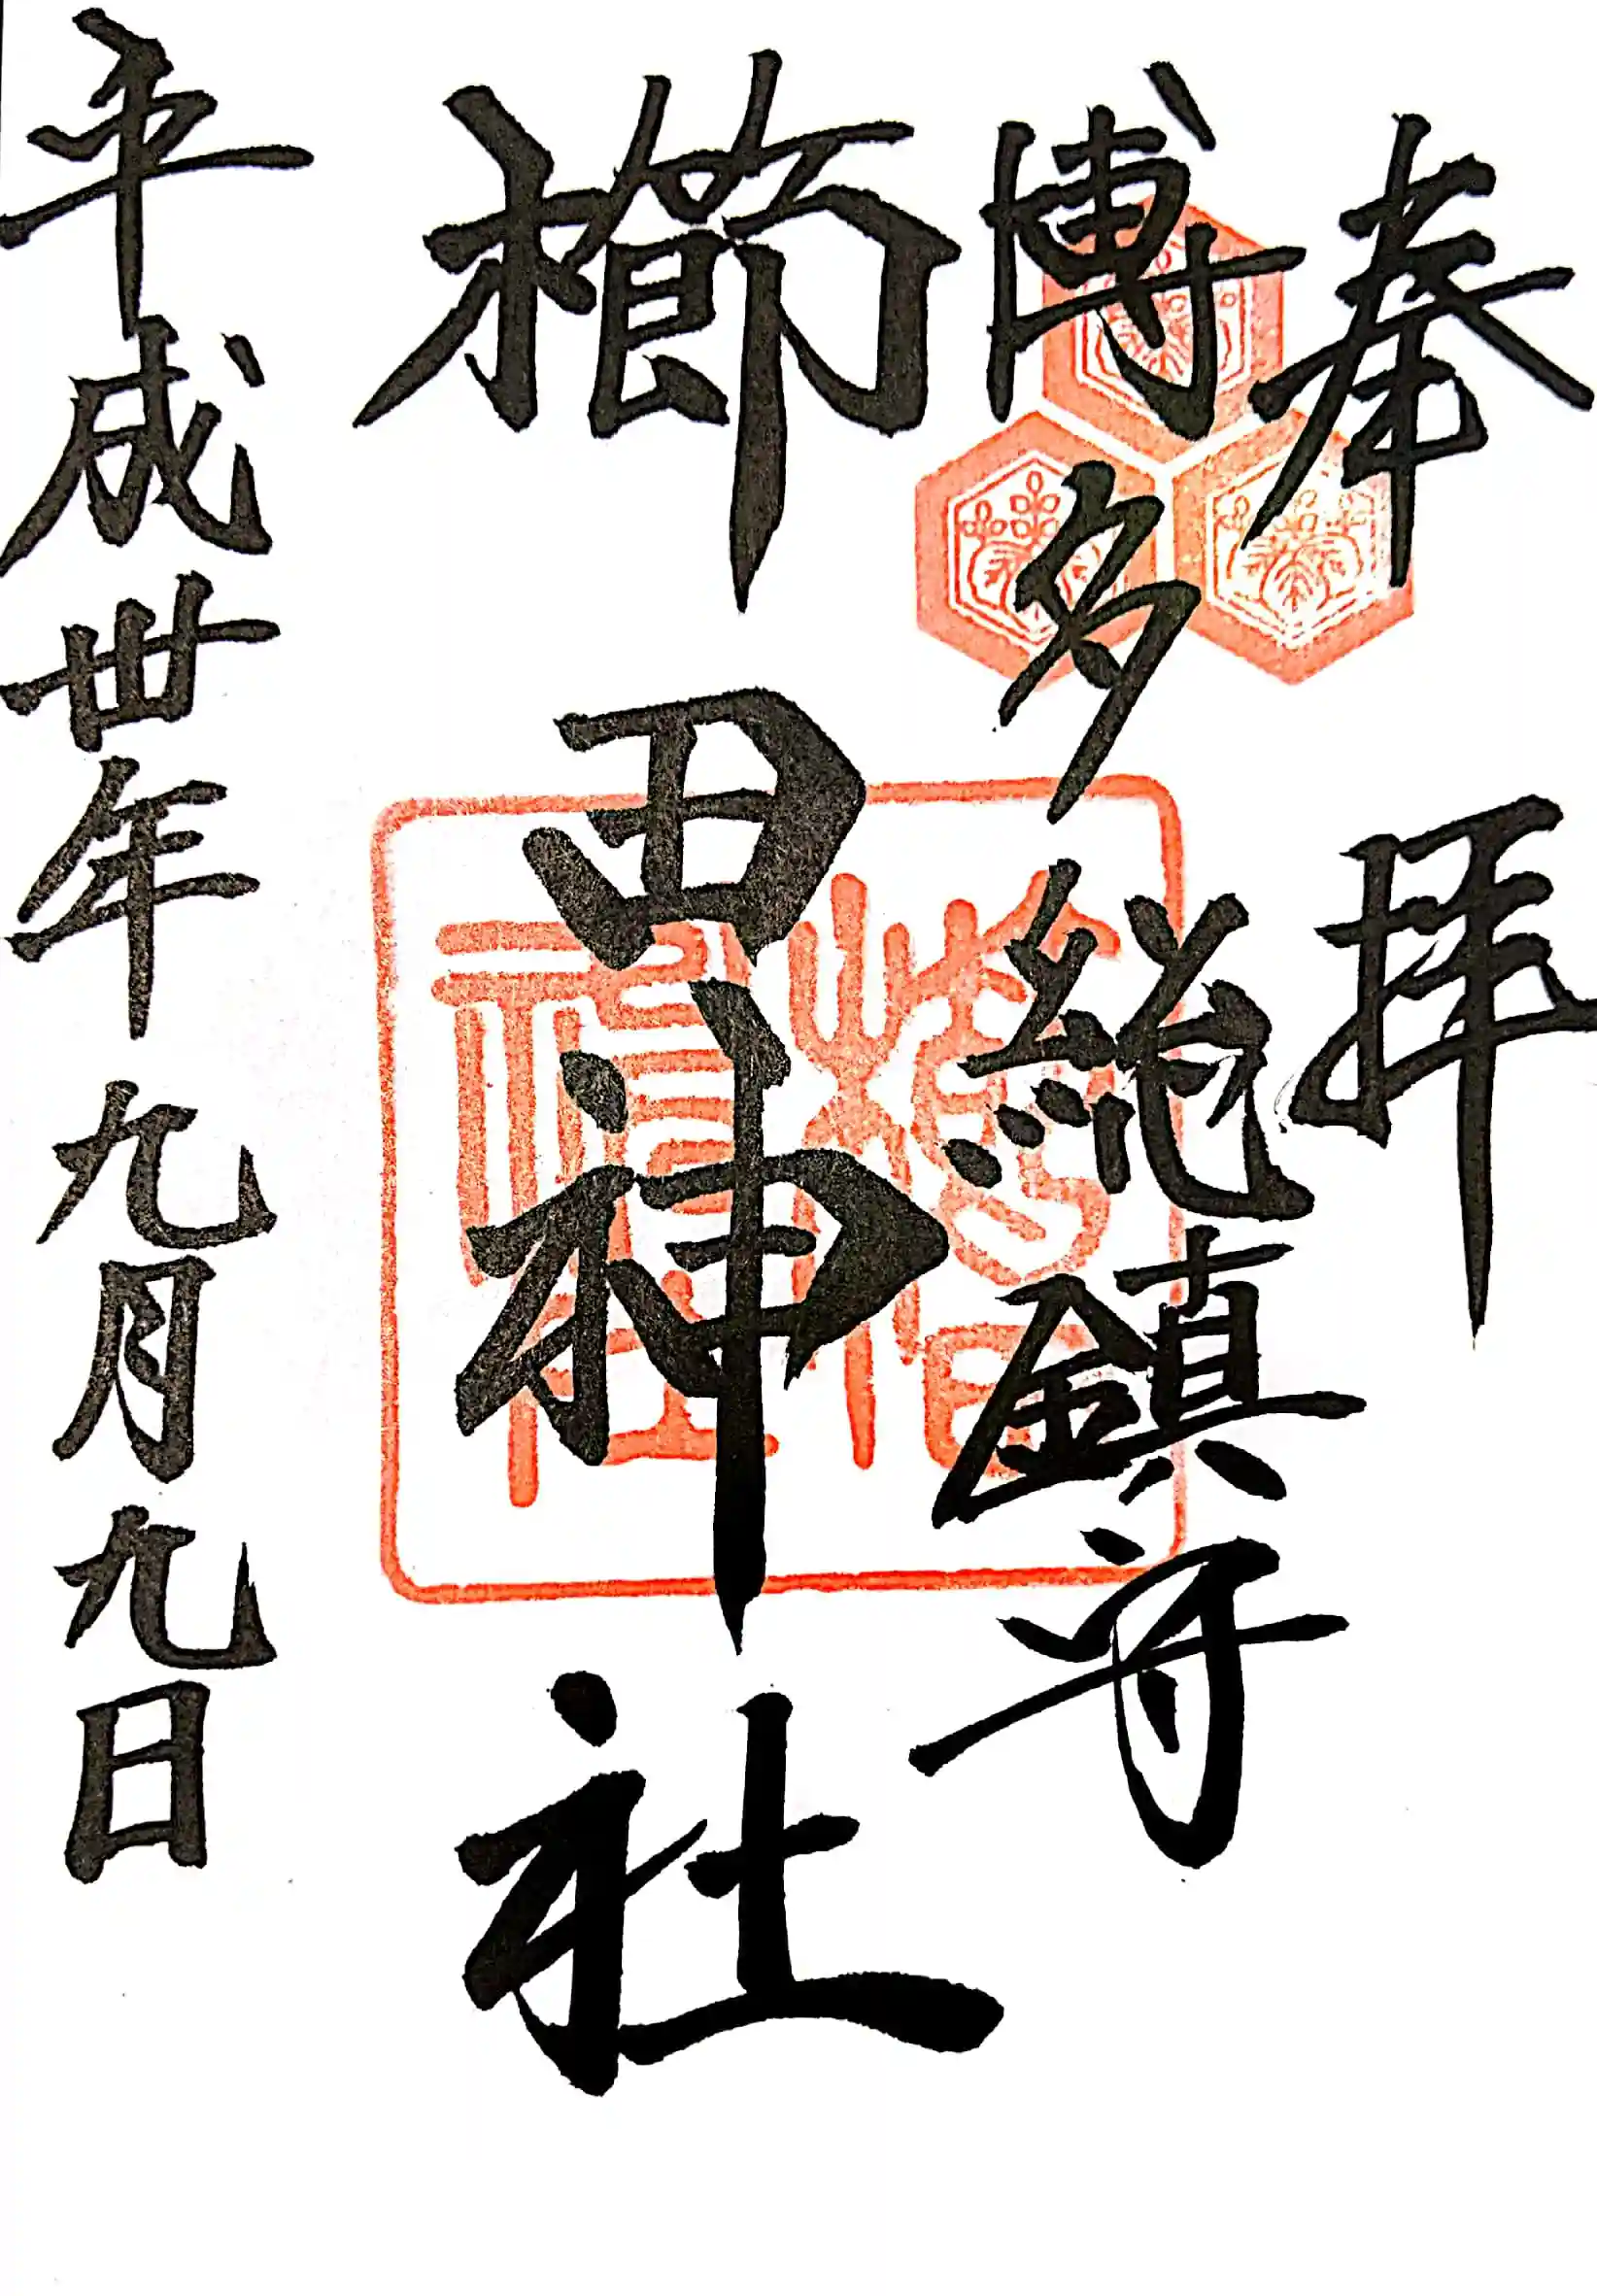 奉拝
博多総鎮守
櫛田神社
平成丗年九月九日
櫛田神社